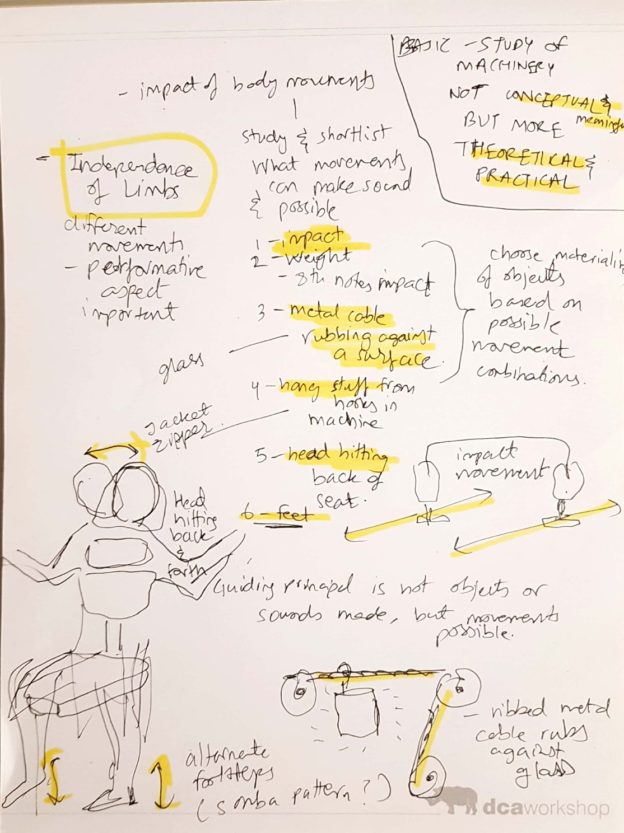 - impact of body movements
BASIC - STUDY OF
MACHINERY
NOT CONCEPTUAL &
meaningful
BUT MORE
THEORETICAL &
PRACTICAL
- Independence
of Limbs
different
movements
- performative
aspect
important
study & shortlist
what movements
can make sound
& possible
1 - impact
2 - weight
- 8th notes impact
3 - metal cable
rubbing against
a surface.
4 - hang stuff from
hooks in
machine
5 - head hitting
back of
seat.
6 - feet
choose materiality
of objects
based on
possible
movement
combinations.
glass
Jacket
zipper.
impact
movement
Head
hitting
back
&
forth
Guiding principal is not objects or
sounds made, but movements
possible.
alternate
footsteps
(samba pattern?)
- ribbed metal
cable rubs
against
glass
dcaworkshop